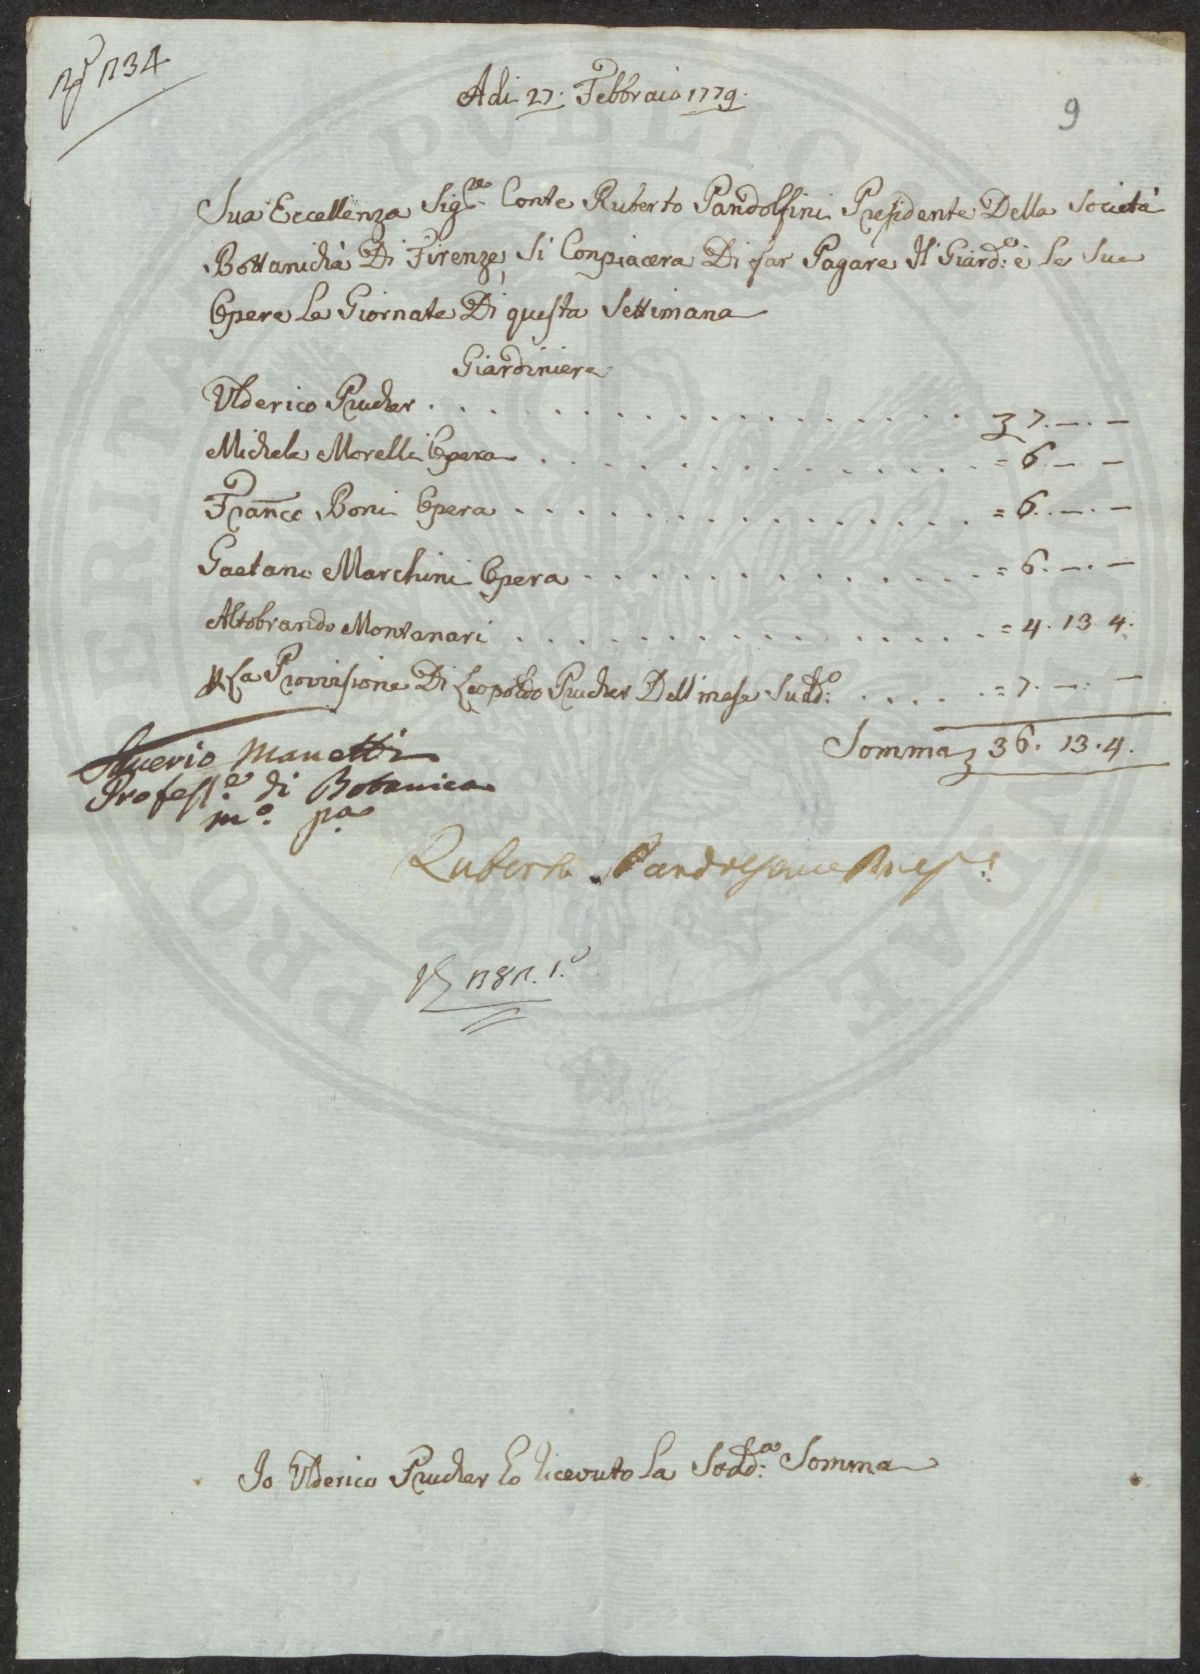 N° 1134
Adi 27. Febbraio 1779.
9
Sua Eccellenza Sig.re Conte Ruberto Pandolfini Presidente Della Società
Bottanichà Di Firenze, Si Conpiacera Di far Pagare Il Giard.o è Le Sue
Opere Le Giornate Di questa Settimana
Giardiniere
Ulderico Prucher . . . . . . . . . . . . . . . . . 7. — . —
Michele Morelli Opera . . . . . . . . . . . . . = 6. — . —
Franco Boni Opera . . . . . . . . . . . . . . = 6. — . —
Gaetano Marchini Opera . . . . . . . . . . . . = 6. — . —
Altobrando Montanari . . . . . . . . . . . . . . = 4. 13. 4.
La Provvisione Di Leopoldo Prucher Dell mese Sudd.o . . . . . = 7. — . —
Somma 36. 13. 4.
Saverio Manetti
Profess.e di Botanica
m.o pa
Ruberto Pandolfini Pres.e
1. 
Io Ulderico Prucher ho ricevuto La Sodd.a Somma
PROSPERITATI PUBLICAE AUGENDAE